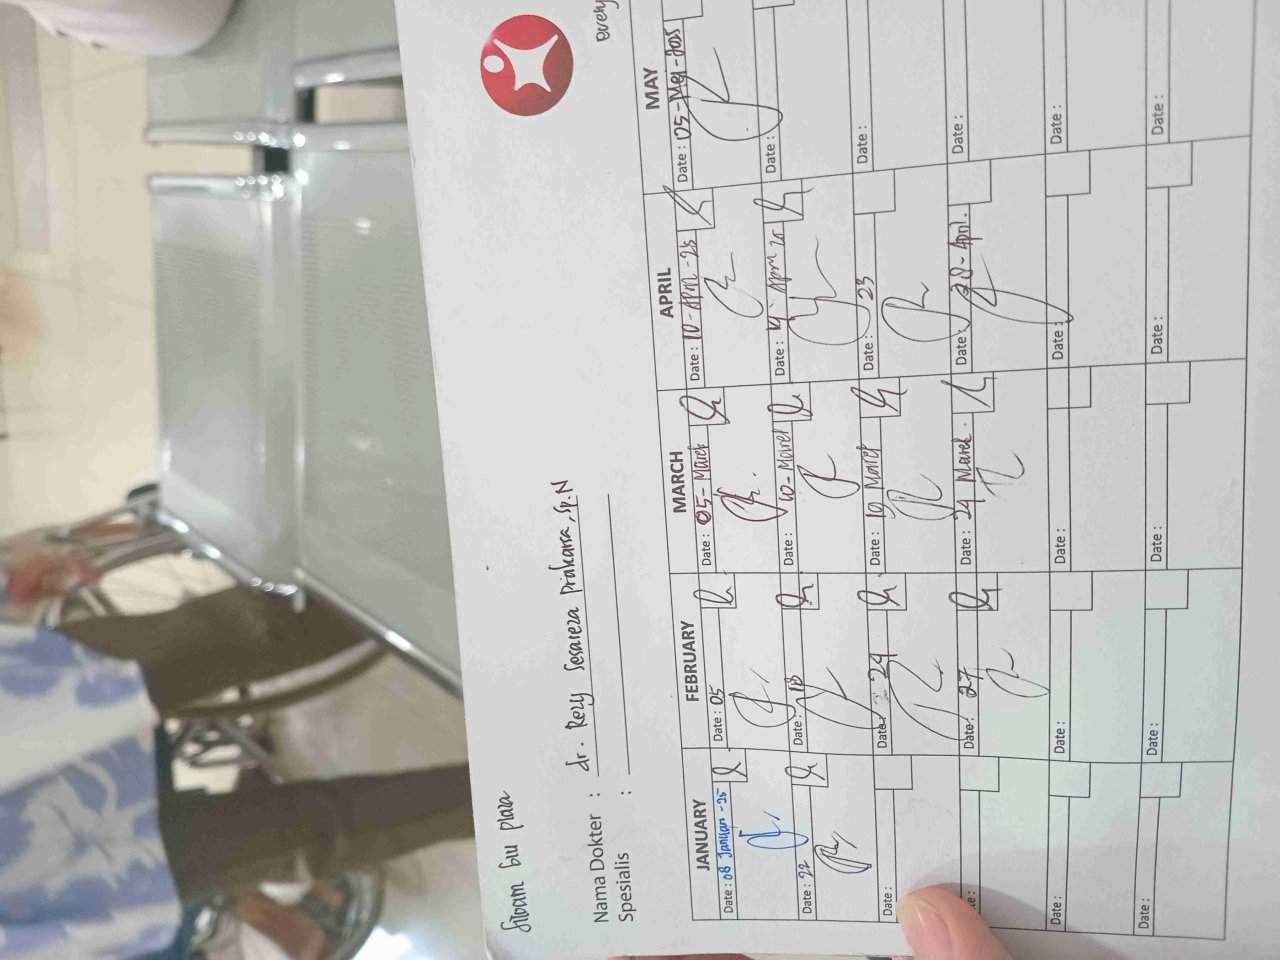 every
Siloam bu plaza
Nama Dokter : dr. Rezy Sesareza Prakarsa, Sp.N
Spesialis :
JANUARY FEBRUARY MARCH APRIL MAY
Date : 08 Januari -25 Date : 05 Date : 05 - Maret Date : 10 - April - 25 Date : 05 - Mei - 2025
Date : 22 Date : 18 Date : 10 - Maret Date : April 25 Date :
Date : Date : 24 Date : 10 Maret Date : 23 Date :
Date : 27 Date : 24 Maret. Date : 28 - April. Date :
Date : Date : Date : Date : Date :
Date : Date : Date : Date : Date :